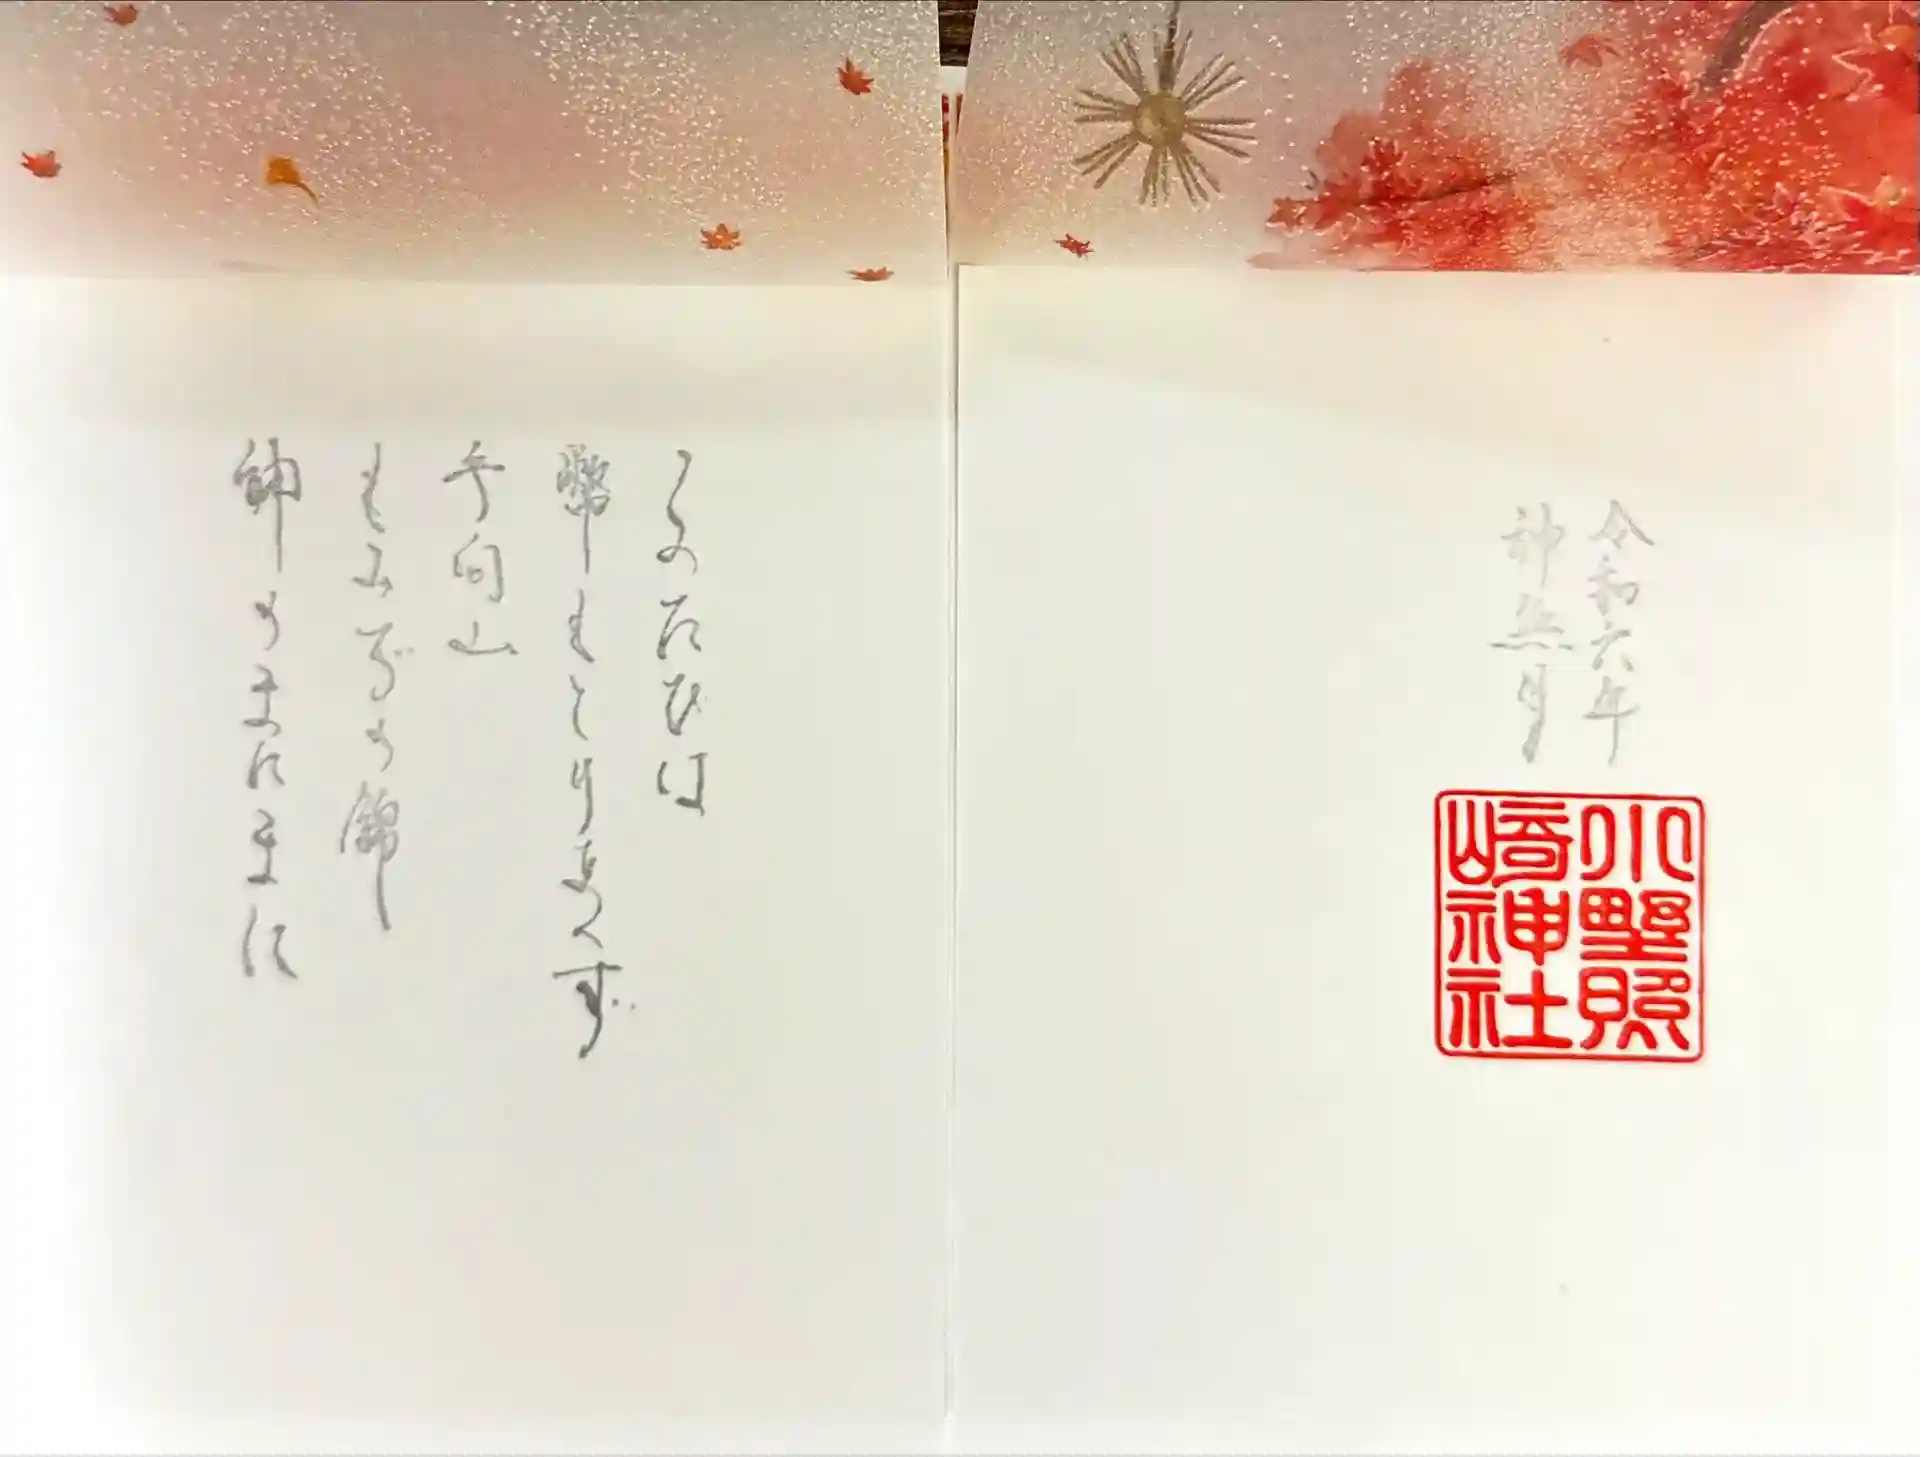 令和六年
神無月
小野照
崎神社
このたびは
幣もとりあへず
手向山
もみぢの錦
神のまにまに